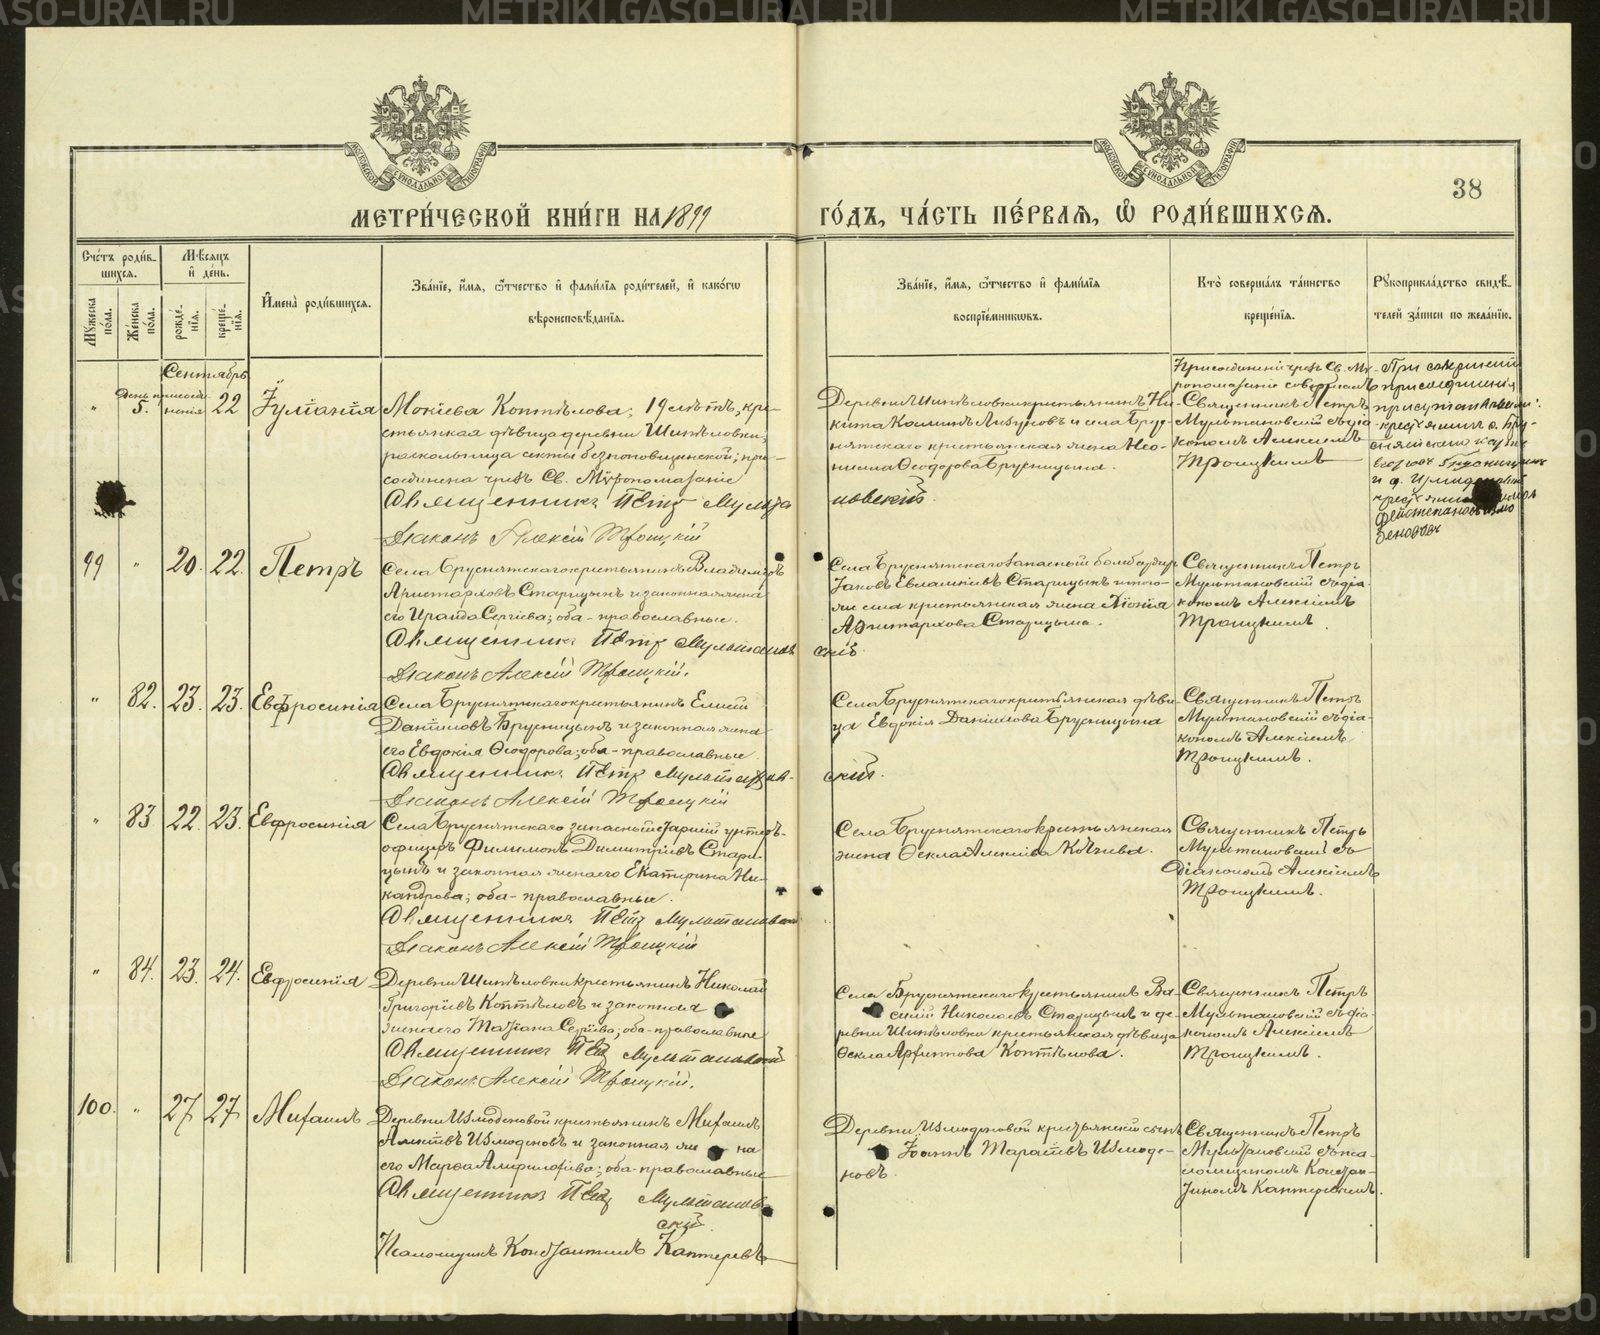 METRIKI.GASO-URAL.RU
МОСКОВСКОЙ СѴНОДАЛЬНОЙ ТИПОГРАФІИ
МОСКОВСКОЙ СѴНОДАЛЬНОЙ ТИПОГРАФІИ
38
МЕТРИ́ЧЕСКОЙ КНИ́ГИ НА 1899 ГО́ДЪ, ЧА́СТЬ ПЕ́РВАѦ, Ѡ҆ РОДИ́ВШИХСѦ.
Сче́тъ роди́вшихсѧ.
Мѣ́сяцъ и҆ де́нь.
И҆мена̀ роди́вшихсѧ.
Зва́нїе, и҆́мѧ, ѻ҆́тчество и҆ фами́лїѧ роди́телей, и҆ како́гѡ вѣроисповѣ́данїѧ.
Зва́нїе, и҆́мѧ, ѻ҆́тчество и҆ фами́лїѧ воспрїе́мникѡвъ.
Кто̀ соверша́лъ та́инство креще́нїѧ.
Рꙋкоприкла́дство свидѣ́телей за́писи по жела́нїю.
Мꙋ́жеска по́ла.
Же́нска по́ла.
рожде́нїѧ.
креще́нїѧ.
Сентябрь
" 5. 22 Іуліанія
Мокіева Коптѣлова, 19 лѣтъ, кре-
стьянская дѣвица деревни Шипѣловки,
раскольница секты безпоповщинской; при-
соединена чрезъ Св. Мѵропомазаніе
Священникъ Петръ Мультановскій
Діаконъ Алексій Троицкій
Деревни Шипѣловки крестьянинъ Ни-
кита Косминъ Ливуновъ и села Брус-
нятскаго крестьянская жена Нео-
нилла Ѳеодорова Брусницына.
Присоединеніе чрезъ Св. Мѵ-
ропомазаніе совершалъ
Священникъ Петръ
Мультановскій съ діа-
кономъ Алексіемъ
Троицкимъ
При совершеніи
присоединенія
99 " 20. 22. Петръ
Села Бруснятскаго крестьянинъ Владиміръ
Аристарховъ Старицынъ и законная жена
его Ираида Сергіева; оба-православные.
Священникъ Петръ Мультановскій
Діаконъ Алексій Троицкій.
Села Бруснятскаго запасный бомбардиръ
Іаковъ Евлампіевъ Старицынъ и того-
же села крестьянская жена
Аристархова Старицына.
Священникъ Петръ
Мультановскій съ діа-
кономъ Алексіемъ
Троицкимъ.
" 82. 23. 23. Евфросинія
Села Бруснятскаго крестьянинъ Елисей
Даніиловъ Брусницынъ и законная жена
его Евдокія Ѳеодорова; оба-православные
Священникъ Петръ Мультановскій.
Діаконъ Алексій Троицкій
Села Бруснятскаго крестьянская дѣви-
ца Евдокія Даніилова Брусницына
Священникъ Петръ
Мультановскій съ діа-
кономъ Алексіемъ
Троицкимъ.
" 83 22. 23. Евфросинія
Села Бруснятскаго запасный старшій унтеръ-
офицеръ Филимонъ Димитріевъ Стари-
цынъ и законная жена его Екатерина Ни-
кандрова; оба-православные.
Священникъ Петръ Мультановскій
Діаконъ Алексій Троицкій
Села Бруснятскаго крестьянская
жена Ѳекла Алексіева Кочнева.
Священникъ Петръ
Мультановскій съ
діакономъ Алексіемъ
Троицкимъ.
" 84. 23. 24. Евфросинія
Деревни Шипѣловки крестьянинъ Николай
Григоріевъ Коптѣловъ и законная
жена его Татіана Сергіева; оба-православные
Священникъ Петръ Мультановскій
Діаконъ Алексій Троицкій.
Села Бруснятскаго крестьянинъ Ва-
силій Николаевъ Старицынъ и де-
ревни Шипѣловки крестьянская дѣвица
Ѳекла Архиппова Коптѣлова.
Священникъ Петръ
Мультановскій съ діа-
кономъ Алексіемъ
Троицкимъ.
100. " 27 27 Михаилъ
Деревни Измоденовой крестьянинъ Михаилъ
Измоденовъ и законная жена
его Марѳа Амфилохіева; оба-православные
Священникъ Петръ Мультановскій.
Псаломщикъ Константинъ Каптеревъ
Деревни Измоденовой крестьянскій сынъ
Іоаннъ Тарасіевъ Измоде-
новъ.
Священникъ Петръ
Мультановскій съ пса-
ломщикомъ Констан-
тиномъ Каптеревымъ.